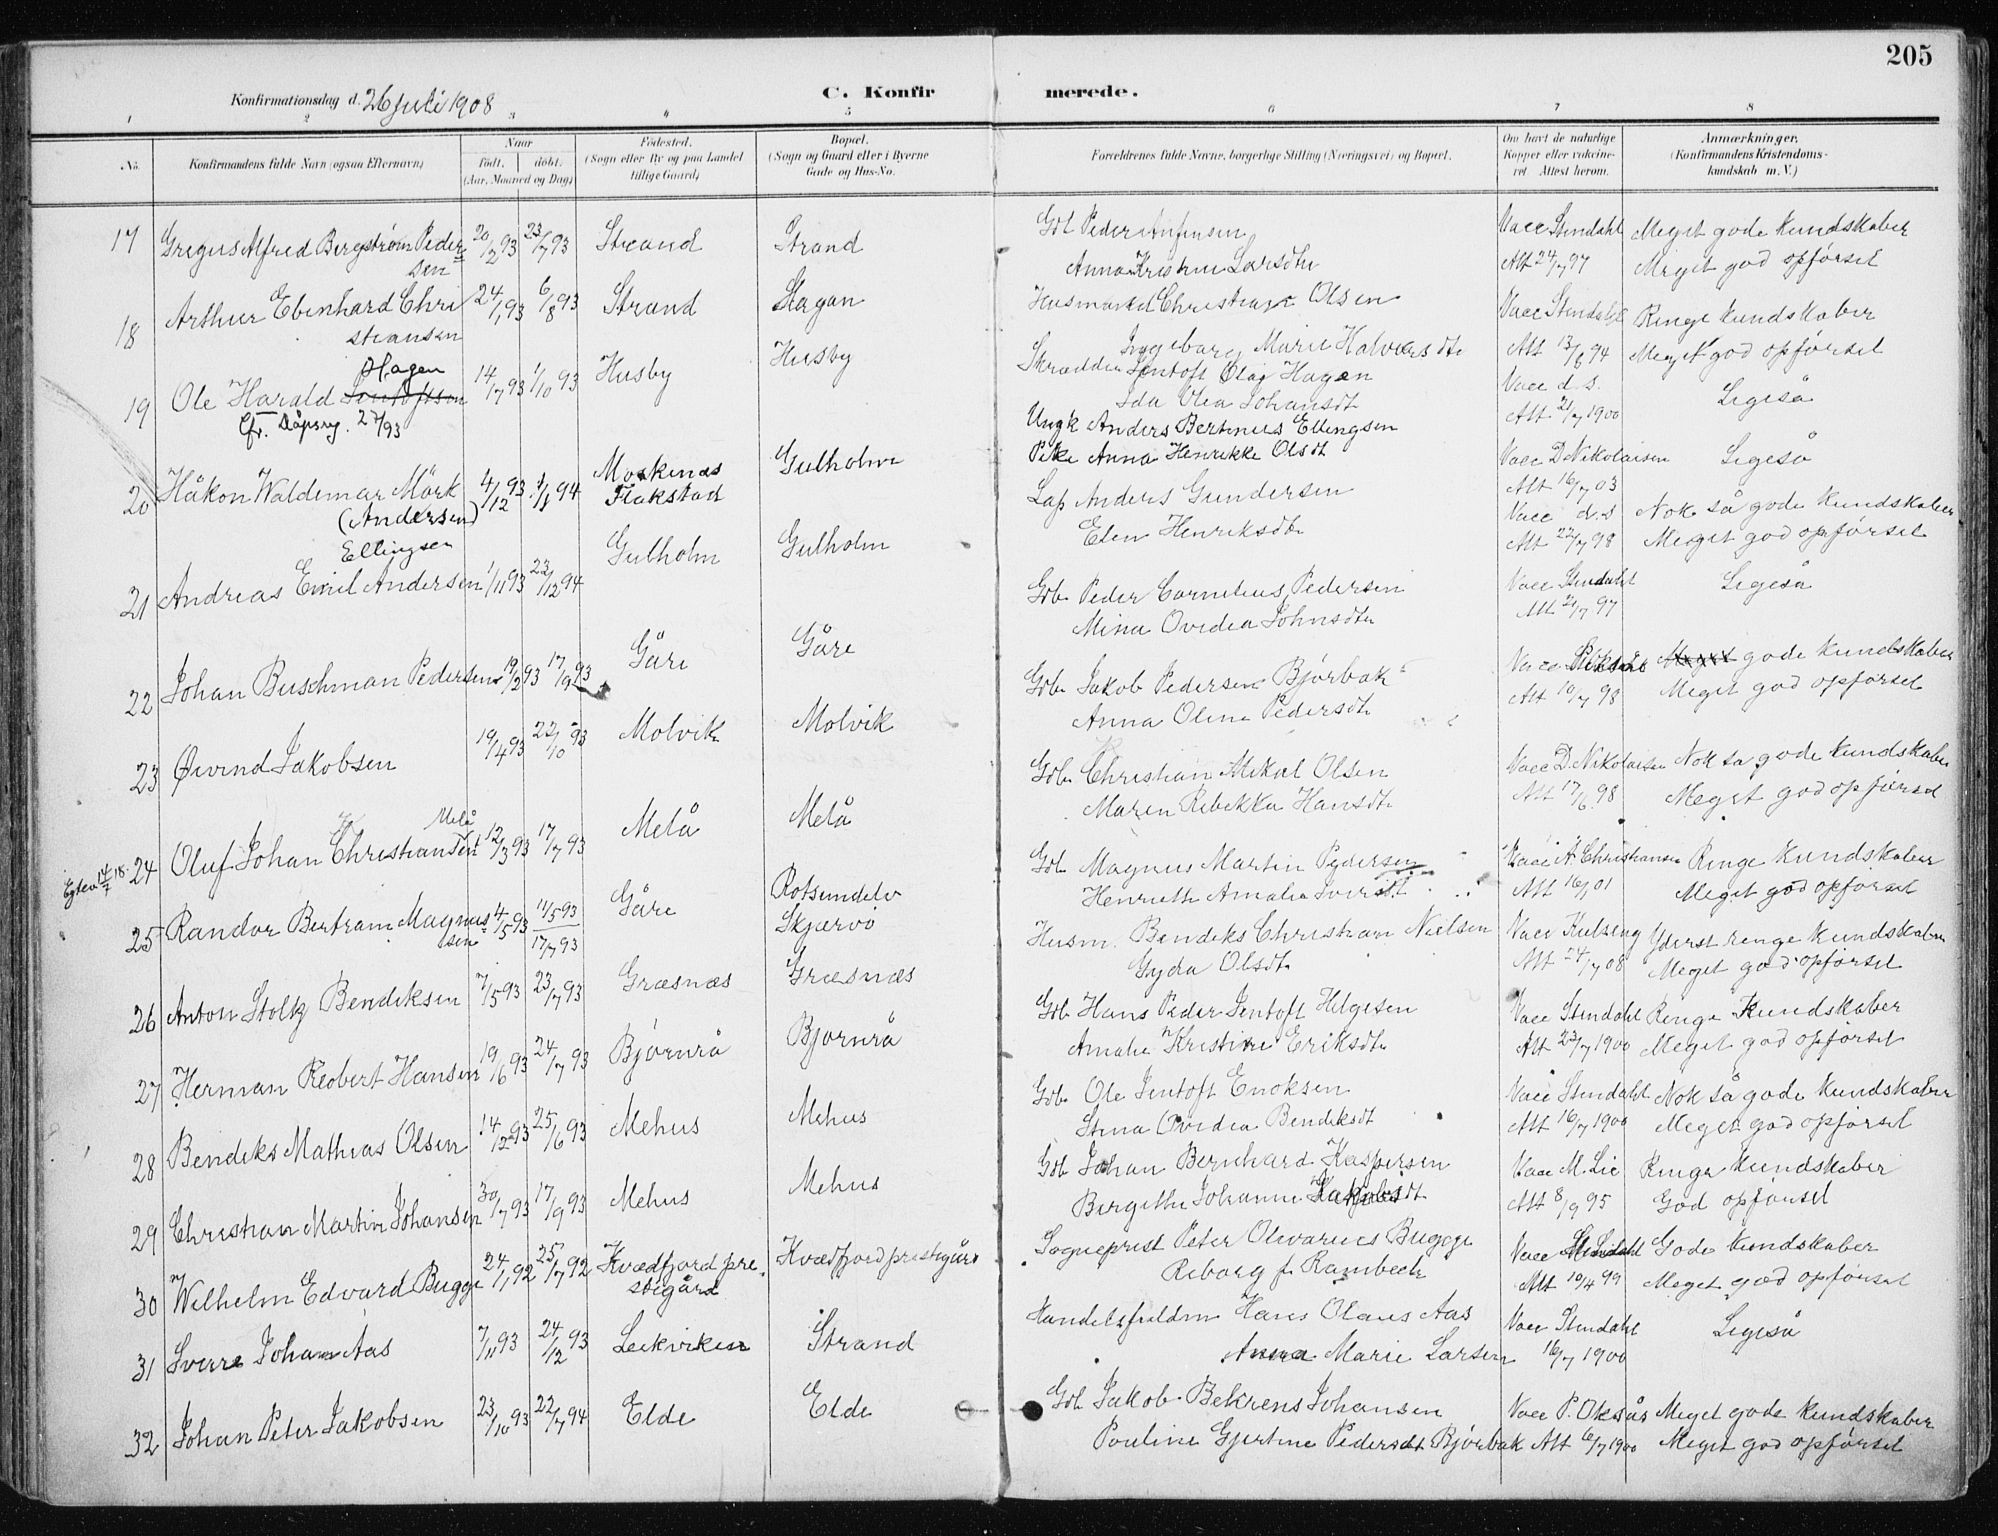 205
Konfirmationsdag d. 26 juli 1908
C. Konfirmerede.
1 2 3 4 5 6 7 8
No. Konfirmandens fulde Navn (ogsaa Efternavn) Naar født. døbt. (Aar, Maaned og Dag) Fødested. (Sogn eller By og paa Landet tillige Gaard) Bopæl. (Sogn og Gaard eller i Byerne Gade og Hus-No. Forældrenes fulde Navne, borgerlige Stilling (Næringsvei) og Bopæl. Om havt de naturlige Kopper eller vakcineret Attest herom. Anmærkninger. (Konfirmandens Kristendomskundskab m. V.)
17 Gregus Alfred Bergstrøm Pedersen 20/2 93 23/7 93 Strand Strand Gbl Peder Vacc Stendahl Meget gode kundskaber
Anna Kristine Larsdtr Att 24/7 97 Meget god opførsel
18 Arthur Ebenhard Christiansen 24/1 93 6/8 93 Strand Hagan Husmand Christian Olsen Vacc Stendahl Ringe kundskaber
Ingeborg Marie Halvorsdtr Att 13/6 94 Meget god opførsel
19 Ole Harald Jentoftsen Hagen 14/7 93 1/10 93 Husby Husby Skrædder Jentoft Olaj Hagen Vacc d.s. Ligeså
Cfr. Dåpsreg. 27/93 Ida Olea Johansdt Att 21/7 1900
20 Håkon Waldemar Mörk (Andersen) 4/12 93 1/1 94 Moskenes Flakstad Gulholm Ungk Anders Bertinus Ellingsen Vacc D. Nikolaisen Ligeså
Pike Anna Henrikke Olsdt Att 16/7 03
21 Andreas Emil Andersen Ellingsen 1/11 93 23/12 94 Gulholm Gulholm Lap Anders Gundersen Vacc d.s Nok så gode kundskaber
Elen Henriksdtr Att 22/7 98 Meget god opførsel
22 Johan Buschman Pedersen 19/2 93 17/9 93 Gåre Gåre Gbr Peder Cornelius Pedersen Vacc Stendahl Ligeså
Mina Ovidia Johnsdtr Att 21/7 97
23 Øivind Jakobsen 19/4 93 22/10 93 Molvik Molvik Gbr Jakob Pedersen Bjørbak Vacc Meget gode kundskaber
Anna Oline Pedersdt Att 10/7 98 Meget god opførsel
24 Oluf Johan Christiansen Melå 12/3 93 17/7 93 Melå Melå Gbr Christian Mikal Olsen Vacc D. Nikolaisen Nok så gode kundskaber
Egtev 14/7 18. Maren Rebekka Hansdt Att 17/6 98 Meget god opførsel
25 Randor Bertram Magnussen 4/5 93 11/5 93 17/7 93 Gåre Rotsundelv Skjærvø Gbr Magnus Martin Pedersen Vacc A. Christiansen Ringe kundskaber
Henriette Amalie Att 16/7 01 Meget god opførsel
26 Anton Stoltz Bendiksen 7/5 93 23/7 93 Græsnæs Græsnæs Husm. Bendiks Christian Nielsen Vacc Kulseng Yderst ringe kundskaber
Gyda Olsdt Att 24/7 08 Meget god opførsel
27 Herman Robert Hansen 19/6 93 24/7 93 Bjørnrå Bjørnrå Gbr Hans Peder Jentoft Helgesen Vacc Stendahl Ringe kundskaber
Amalie Kristine Eriksdtr Att 23/7 1900 Meget god opførsel
28 Bendiks Mathias Olsen 14/2 93 25/6 93 Mehus Mehus Gbr Ole Jentoft Enoksen Vacc Stendahl Nok så gode kundskaber
Stina Ovidia Bendiksdt Att 16/7 1900 Meget god opførsel
29 Christian Martin Johansen 30/7 93 17/9 93 Mehus Mehus Gbr Johan Bernhard Kaspersen Vacc M. Lie Ringe kundskaber
Bergitte Johanne Jakobsdt Att 8/9 95 God opførsel
30 Wilhelm Edvard Bugge 24/1 92 25/7 92 Kvædfjord prestegård Kvædfjord prestegård Sogneprest Peter Olivarius Bugge Vacc Stendahl Gode kundskaber
Reborg f. Rambech Att 10/4 99 Meget god opførsel
31 Sverre Johan Aas 7/11 93 24/12 93 Leikviken Strand Handelsfuldm Hans Olaus Aas Vacc Stendahl Ligeså
Anna Marie Larsen 16/7 1900
32 Johan Peter Jakobsen 23/10 93 22/7 94 Elde Elde Gbl Jakob Behrens Johansen Vacc P. Oksås Meget gode kundskaber
Pouline Gjertine Pedersdt Bjørbak Att 6/7 1900 Meget god opførsel